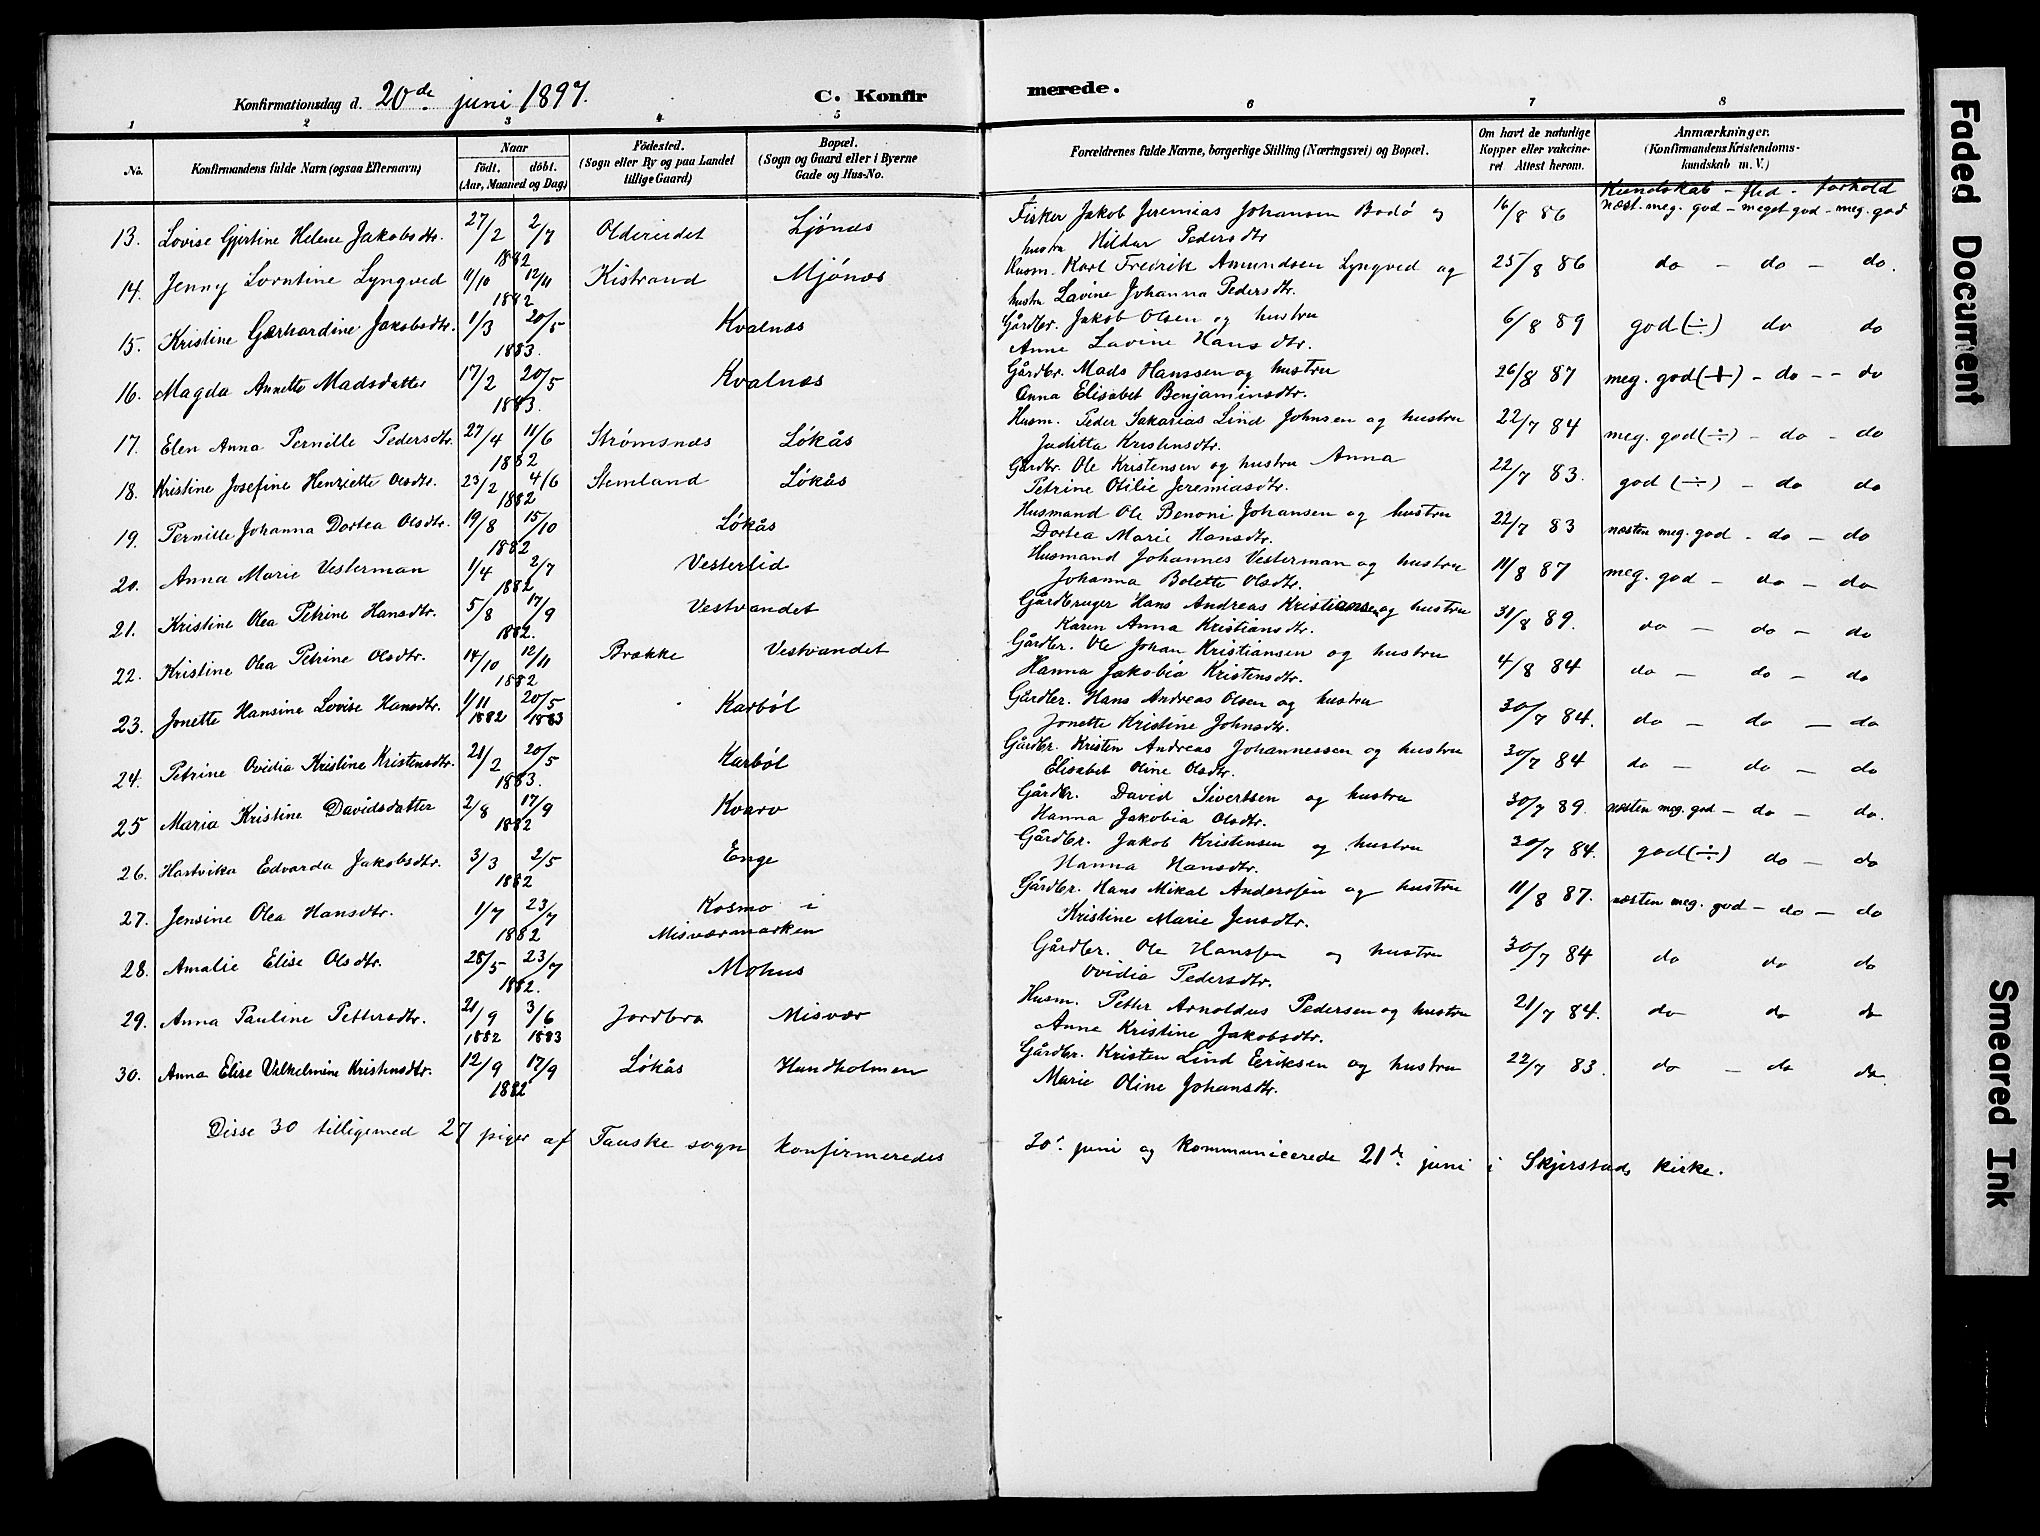 Konfirmationsdag d. 20de juni 1897. C. Konfir merede.
1 2 3 4 5 6 7 8
No. Konfirmandens fulde Navn (ogsaa Efternavn) Naar født. døbt. (Aar, Maaned og Dag) Födested. (Sogn eller By og paa Landet tillige Gaard) Bopæl. (Sogn og Gaard eller i Byerne Gade og Hus-No. Forældrenes fulde Navne, borgerlige Stilling (Næringsvei) og Bopæl. Om havt de naturlige Kopper eller vakcineret Attest herom. Anmærkninger. (Konfirmandens Kristendomskundskab m. V.)
Kundskab - flid - forhold
13. Lovise Gjertine Helene Jakobsdtr. 27/2 2/7 1882 Oldereidet Ljönes Fisker Jakob Jeremias Johansen Bodö og hustru Hildur Pedersdtr 16/8 86 næst. meg. god - meget god - meg. god
14. Jenny Lorntine Lyngved 11/10 12/11 1882 Kistrand Mjönes Husm. Karl Fredrik Amundsen Lyngved og hustru Lavine Johanna Pedersdtr. 25/8 86 do - do - do.
15. Kristine Gerhardine Jakobsdtr. 1/3 20/5 1883. Kvalnes Gårdbr. Jakob Olsen og hustru Anne Lavine Hansdtr. 6/8 89 god (÷) do do
16. Magda Annette Madsdatter 17/2 20/5 1883. Kvalnæs Gårdbr. Mads Hanssen og hustru Anna Elisabet Benjaminsdtr. 26/8 87 meg. god (+) - do - - do
17. Elen Anna Pernille Pedersdtr. 27/4 11/6 1882 Strømsnæs Løkås Husm. Peder Sakarias Lind Johnsen og hustru Juditta Kristensdtr. 22/7 84 meg. god (÷) - do - do
18. Kristine Josefine Henriette Olsdtr. 23/2 4/6 1882 Stemland Løkås Gårdbr. Ole Kristensen og hustru Anna Petrine Otilie Jeremiasdtr. 22/7 83. god (÷) - do do
19. Pernille Johanna Dortea Olsdtr. 19/8 15/10 1882 Løkås Husmand Ole Benoni Johansen og hustru Dortea Marie Hansdtr. 22/7 83 næsten meg. god - do - do
20. Anna Marie Vesterman 1/4 2/7 1882 Vesterlid Husmand Johannes Vesterman og hustru Johanna Bolette Olsdtr. 11/8 87 meg. god - do - do
21. Kristine Olea Petrine Hansdtr. 5/8 17/9 1882. Vestvandet Gårdbruger Hans Andreas Kristiansen og hustru Karen Anna Kristiansdtr. 31/8 89. do - do - do
22. Kristine Olea Petrine Olsdtr. 14/10 12/11 1882 Brække Vestvandet Gårdbr. Ole Johan Kristiansen og hustru Hanna Jakobia Kristensdtr. 4/8 84 do - do - do
23. Jonette Hansine Lovise Hansdtr. 1/11 1882 20/5 1883 Karböl Gårdbr. Hans Andreas Olsen og hustru Jonette Kristine Johnsdtr. 30/7 84. do - do - do
24. Petrine Ovidia Kristine Kristensdtr. 21/2 20/5 1883. Karböl Gårdbr. Kristen Andreas Johannessen og hustru Elisabet Oline Olsdtr. 30/7 84 do - do - do
25 Maria Kristine Davidsdatter 2/8 17/9 1882 Kvarv Gårdbr. David Sivertsen og hustru Hanna Jakobia Olsdtr. 30/7 89. næsten meg. god - do - do.
26. Hartvika Edvarda Jakobsdtr. 3/3 2/5 1882 Enge Gårdbr. Jakob Kristensen og hustru Hanna Hansdtr. 30/7 84. god (÷) do - do
27. Jensine Olea Hansdtr. 1/7 23/7 1882 Kosmo i Misværmarken Gårdbr. Hans Mikal Anderssen og hustru Kristine Marie Jensdtr. 11/8 87. næsten meg. god - do - do
28. Amalie Elise Olsdtr. 28/5 23/7 1882. Mohus Gårdbr. Ole Hanssen og hustru Ovidia Pedersdtr. 30/7 84 do do do
29. Anna Pauline Pettersdtr. 21/9 1882 3/6 1883 Jordbro Misvær Husm. Petter Arnoldus Pedersen og hustru Anne Kristine Jakobsdtr. 21/7 84. do do do
30. Anna Elise Vilhelmine Kristensdtr. 12/9 17/9 1882 Løkås Hundholmen Gårdbr. Kristen Lind Eriksen og hustru Marie Oline Johansdtr. 22/7 83. do - do do
Disse 30 tilligemed 27 piger af Fauske sogn konfirmeredes 20. juni og kommunicerede 21de juni i Skjerstads kirke.
Faded Document
Smeared Ink